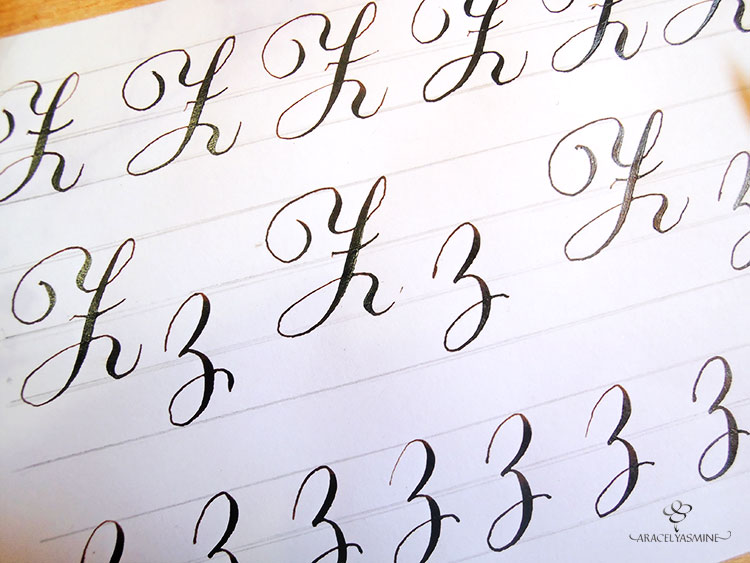 Z Z Z Z Z Z
Z z Z z Z z
z z z z z z z
ARACELYASMINE